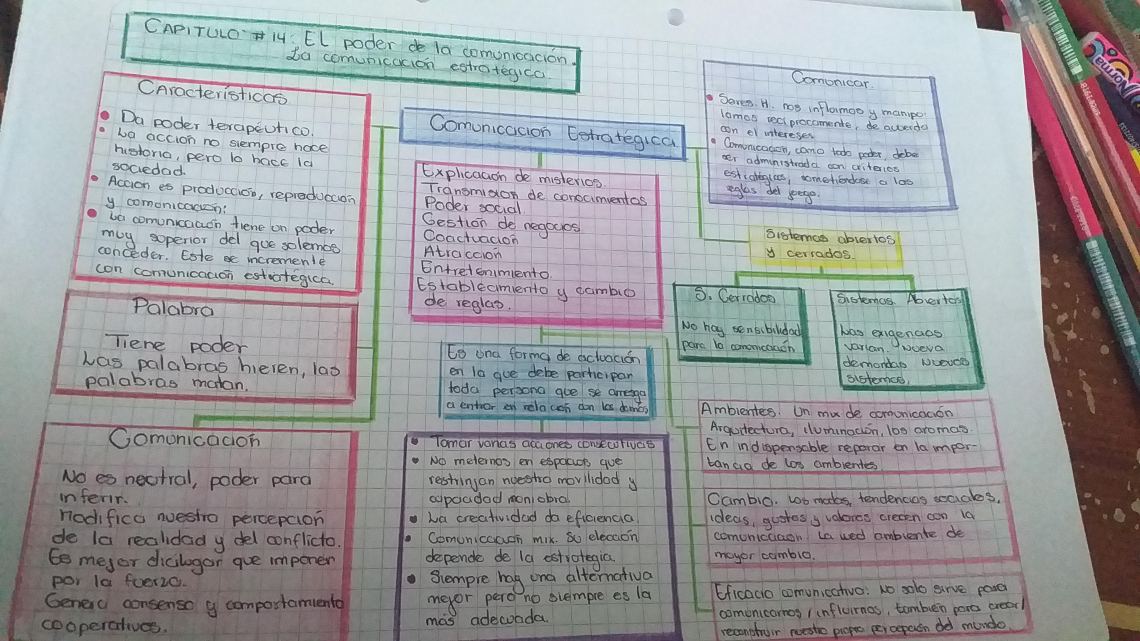 CAPITULO #14: EL poder de la comunicación.
La comunicación estratégica.
Características
Da poder terapéutico.
La acción no siempre hace
historia, pero lo hace la
sociedad.
Acción es producción, reproducción
y comunicación:
La comunicación tiene un poder
muy superior del que solemos
conceder. Este se incremente
con comunicación estratégica.
Palabra
Tiene poder
Las palabras hieren, las
palabras matan.
Comunicación
No es neutral, poder para
inferir.
Modifica nuestra percepción
de la realidad y del conflicto.
Es mejor dialogar que imponer
por la fuerza.
Genera consenso y comportamiento
cooperativos.
Comunicación Estratégica
Explicación de misterios.
Transmisión de conocimientos
Poder social
Gestión de negocios
Coactuación
Atracción
Entretenimiento
Establecimiento y cambio
de reglas.
Es una forma de actuación
en la que debe participar
toda persona que se arriesga
a entrar en relación con los demás
Tomar varias acciones consecutivas
No meternos en espacios que
restrinjan nuestra movilidad y
capacidad maniobra.
La creatividad da eficiencia.
Comunicación mix. Su elección
depende de la estrategia.
Siempre hay una alternativa
mejor pero no siempre es la
más adecuada.
Comunicar.
Seres. H. nos inflamos y manipu-
lamos recíprocamente, de acuerdo
con el intereses
Comunicación, como todo poder, debe
ser administrada con criterios
estratégicos, sometiéndose a las
reglas del juego.
Sistemas abiertos
y cerrados.
S. Cerrados
No hay sensibilidad
para la comunicación
Sistemas Abiertos
Las exigencias
varian. Nueva
demandas Nuevos
sistemas.
Ambientes. Un mix de comunicación
Arquitectura, iluminación, los aromas.
En indispensable reparar en la impor-
tancia de los ambientes
Cambio. Las modas, tendencias sociales,
ideas, gustos y valores crecen con la
comunicación. La wed ambiente de
mayor cambio.
Eficacia comunicativo: No solo sirve para
comunicarnos / influirnos, también para crear/
reconstruir nuestra propia percepción del mundo.
Norma